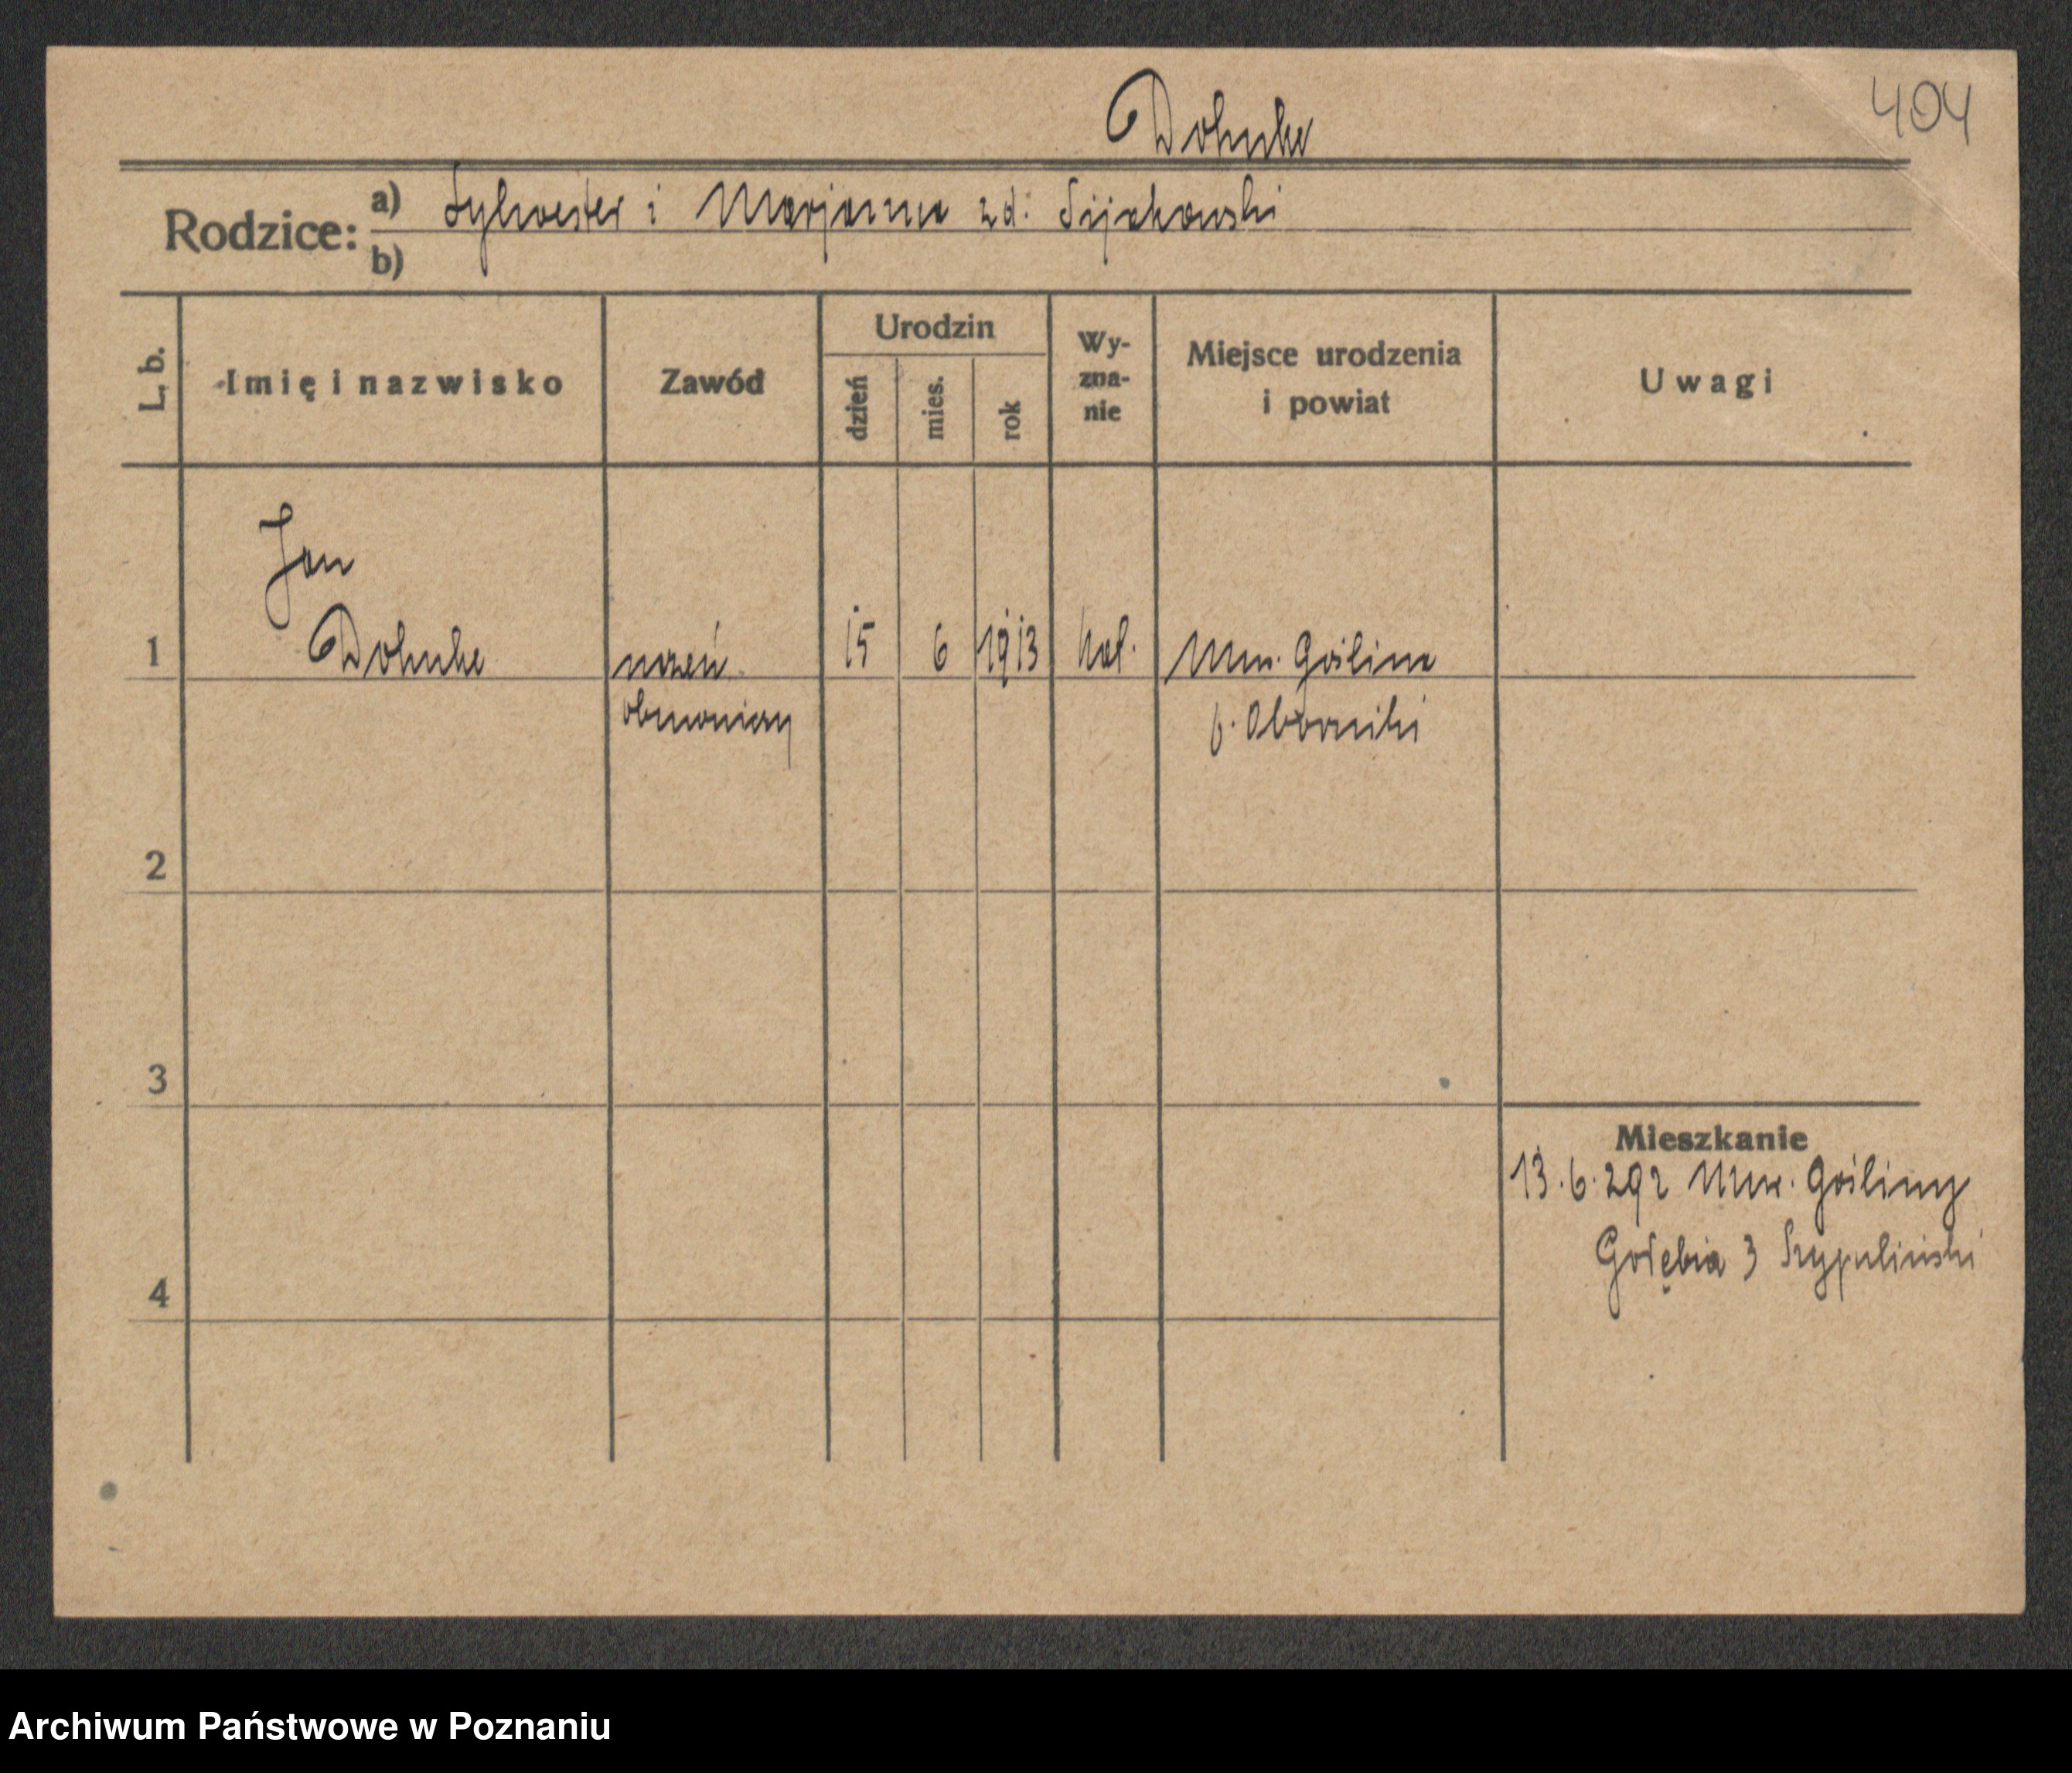 404
Dohnke
Rodzice: a) Sylwester i Marjanna zd: Sijakowski
b)
L. b.
Imię i nazwisko
Zawód
Urodzin
dzień
mies.
rok
Wy-
zna-
nie
Miejsce urodzenia
i powiat
Uwagi
Jan
1 Dohnke uczeń 15 6 1913 kat. Mur. Goślina
p. Oborniki
2
3
Mieszkanie
13.6.29 z Mur. Gośliny
Gołębia 3 Szypuliński
4
Archiwum Państwowe w Poznaniu